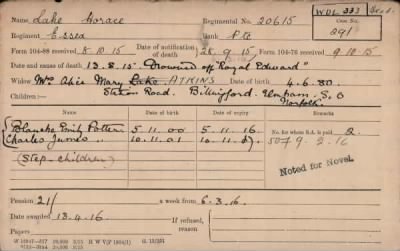 Name Lake Horace Regimental No. 20615
WDL 333 Dead.
Case No. 291
Regiment Essex Rank Pte
Form 104-88 received 8.10.15 Date of notification of death 28.9.15 Form 104-76 received 9.10.15
Date and cause of death 13.8.15 Drowned off "Royal Edward"
Widow Mrs Alice Mary Lake ATKINS 4.6.80.
Children:— Station Road. Billingford. Elmham. S.O
Norfolk.
Name Date of birth Date of expiry
Blanche Emily Potter 5.11.00 5.11.16. No. for whom S.A. is paid 2
Charles James " 10.11.01 10.11.17.
(Step-children)
Noted for Novel.
Pension 21/ a week from 6.3.16.
Date awarded 13.4.16 If refused, reason
Papers